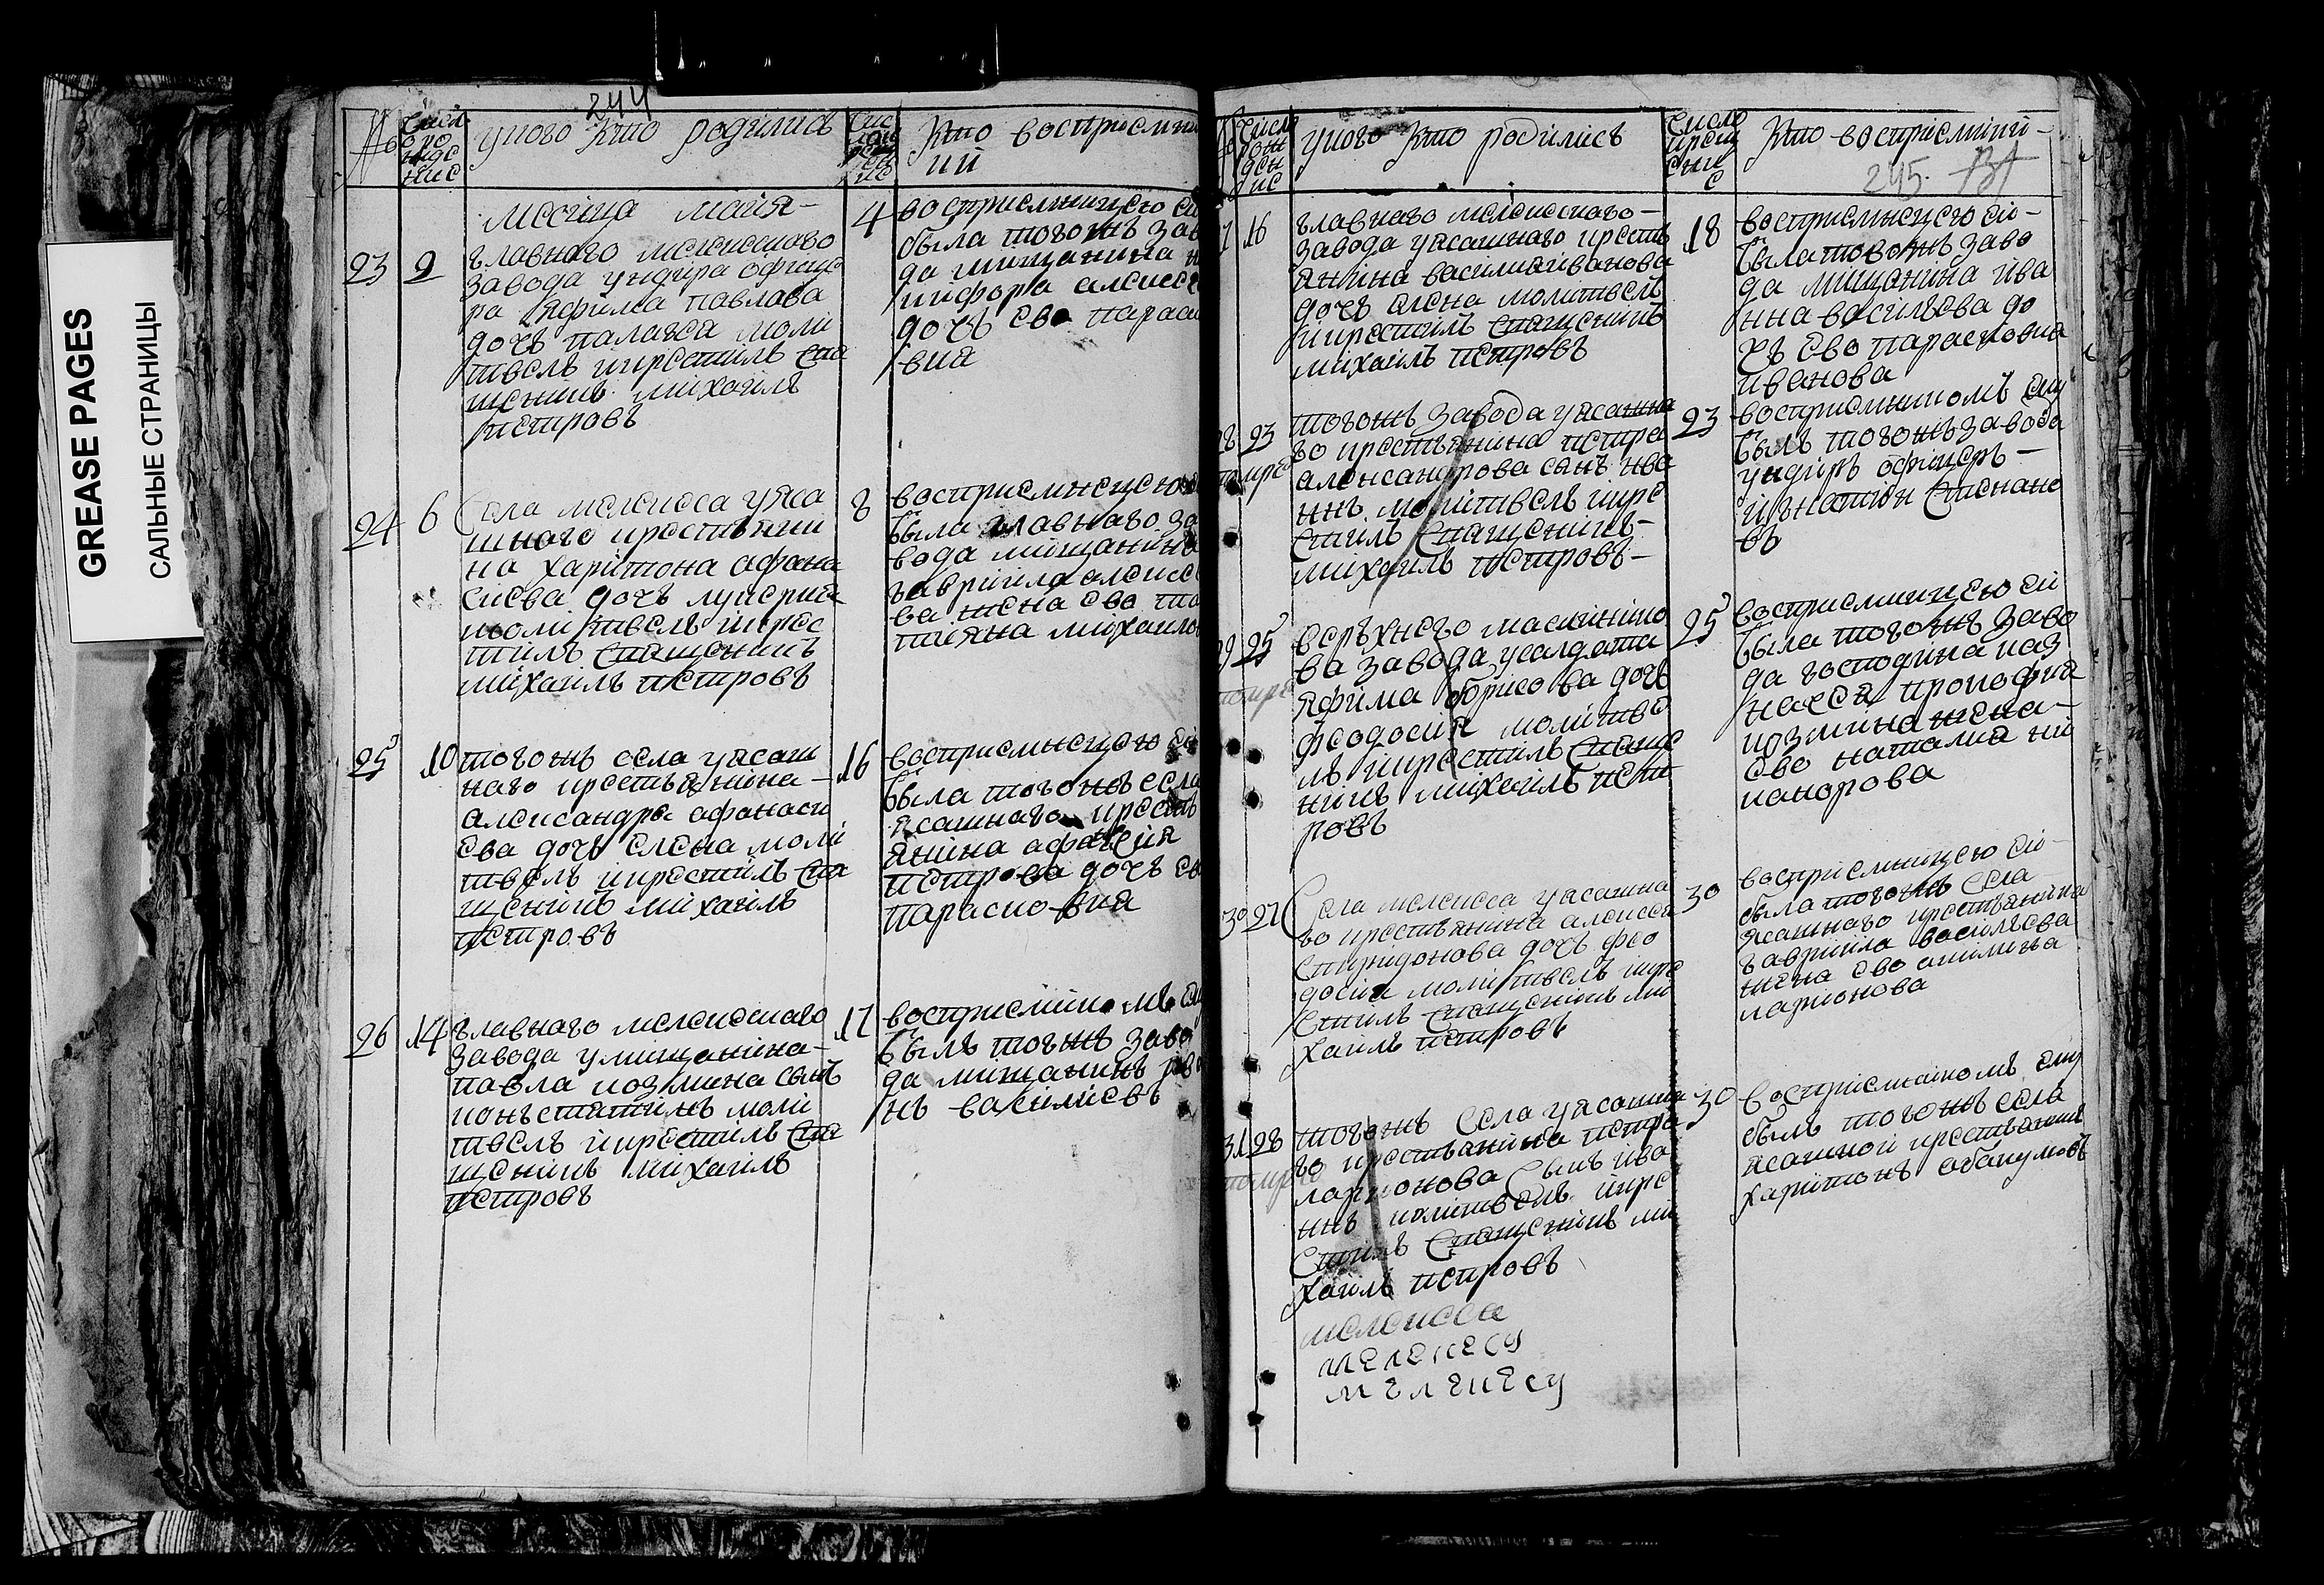 GREASE PAGES
САЛЬНЫЕ СТРАНИЦЫ
244
№
Число рождение
у кого кто родилися
Число крещение
Кто восприемники
месяца майя
23
2
главнаго мелекескаго
завода ундира офице
ра Яфима павлава
дочь палагеа моли
твелъ икрестилъ свя
щеникъ михаилъ
петровъ
4
восприемницею ей
была тогожъ заво
да мищанина ни
кифора алексее
дочъ ево параско
вия
24
6
Села мелекеса уяса
шнаго крестьяни
на харитона афана
сиева дочъ лукериа
молитвелъ икрес
тилъ священикъ
михаилъ петровъ
8
восприемницею ей
была главнаго за
вода мищанина
гавриила алексее
ва жена ево та
тияна михаило
25
10
тогожъ села уясаш
наго крестьянина
александра афонаси
ева дочъ елена моли
твелъ икрестилъ свя
щеникъ михаилъ
петровъ
16
восприемницею ей
была тогожъ села
ясашнаго кресть
янина афанасия
петрова дочъ ев
парасковия
26
14
главнаго мелекескаго
завода умищанина
павла козмина сынъ
конъстатинъ моли
твелъ икрестилъ свя
щеникъ михаилъ
петровъ
17
восприемникомъ ему
былъ тогжъ заво
да мищанинъ
нъ василиевъ
Число рождение
у кого кто родилисъ
Число крещение
Кто восприемники
245
16
главнаго мелекескаго
завода уясашнаго кресть
янина василия иванова
дочъ алена молитвелъ
икрестилъ священикъ
михаилъ петровъ
18
восприемницею ей
была тогожъ заво
да мищанина ива
нна васильева до
чъ ево парасковиа
иванова
28
23
помре
тогожъ завода уясашна
го крестьянина петра
александрова сынъ ива
ннъ молитвелъ икре
стилъ священикъ
михаилъ петровъ
23
восприемникомъ ему
былъ тогожъ завода
ундиръ офицеръ
игънатий степано
въ
29
25
помре
верьхнего маслинико
ва завода усалдата
яфима борисова дочъ
феодосия молитве
лъ икрестилъ священ
никъ михаилъ пет
ровъ
25
восприемницею ей
была тогожъ заво
да господина каз
начея прокофия
козмина жена
ево наталиа ни
канорова
30
27
Села мелекеса уясашна
го крестьянина алексея
спиридонова дочъ фео
досия молитвелъ икре
стилъ священикъ ми
хаилъ петровъ
30
восприемницею ей
была тогожъ села
ясашнаго крестьянина
гавриила васильева
жена ево акилина
ларионова
31
28
помре
тогожъ села уясашна
го крестьянина петра
ларионова сынъ ива
ннъ молитвелъ икре
стилъ священикъ ми
хаилъ петровъ
30
восприемникомъ ему
былъ тогожъ села
ясашной крестьянинъ
харитонъ абакумовъ
мелекеса
мелекесу
мелекесу